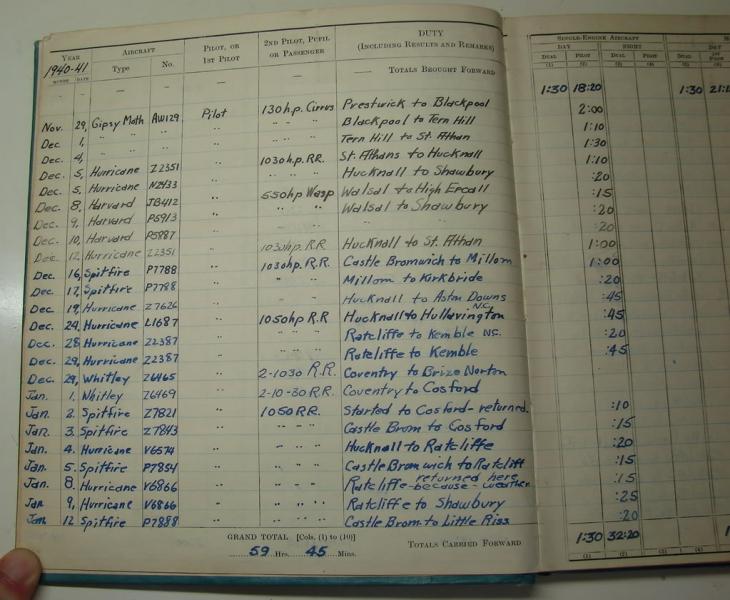 YEAR AIRCRAFT PILOT, OR 1ST PILOT 2ND PILOT, PUPIL OR PASSENGER DUTY (INCLUDING RESULTS AND REMARKS) SINGLE-ENGINE AIRCRAFT
1940-41 Type No. DAY NIGHT
MONTH DATE DUAL PILOT DUAL PILOT DUAL 1ST PILOT
(1) (2) (3) (4) (5)
— — — — — TOTALS BROUGHT FORWARD 1:30 18:20 1:30
Nov. 29, Gipsy Moth AW129 Pilot 130 h.p. Cirrus Prestwick to Blackpool 2:00
Dec 1, " " " " Blackpool to Tern Hill 1:10
Dec 4, " " " " Tern Hill to St. Athan 1:30
Dec. 5, Hurricane Z2351 " 1030 h.p. R.R. St. Athans to Hucknall 1:10
Dec. 5, Hurricane N2433 " Hucknall to Shawbury :20
Dec. 8, Harvard JB412 " 550 hp Wasp Walsal to High Ercall :15
Dec. 9, Harvard P5913 " " " Walsal to Shawbury :20
Dec. 10, Harvard P5887 " " " :20
Dec. 12, Hurricane Z2351 " 1030 hp. R.R Hucknall to St. Athan 1:00
Dec. 16, Spitfire P7788 " 1030 hp. R.R. Castle Bromwich to Millom 1:00
Dec. 17, Spitfire P7788 " " " Millom to Kirkbride :20
Dec. 19, Hurricane Z7626 " Hucknall to Aston Downs :45
Dec. 24, Hurricane L1687 " 1050 hp R.R Hucknall to Hullavington N.C. :45
Dec. 28, Hurricane Z2387 " " " " Ratcliffe to Kemble NC. :20
Dec. 29, Hurricane Z2387 " " " " Ratcliffe to Kemble :45
Dec. 29, Whitley Z6465 " 2-1030 R.R. Coventry to Brize Norton
Jan. 1, Whitley Z6469 " 2-10-30 R.R. Coventry to Cosford
Jan. 2. Spitfire Z7821 " 1050 R.R. Started to Cosford- returned. :10
Jan. 3. Spitfire Z7843 " " " " Castle Brom to Cosford :15
Jan. 4. Hurricane V6574 " " " " Hucknall to Ratcliffe :20
Jan. 5. Spitfire P7854 " " " " Castle Bromwich to Ratcliff :15
Jan. 8. Hurricane V6866 " " " " Ratcliffe returned here because - weather :15
Jan 9, Hurricane V6866 " " " " Ratcliffe to Shawbury :25
Jan. 12 Spitfire P7888 " " " " Castle Brom to Little Riss. :20
GRAND TOTAL [Cols. (1) to (10)]
59 Hrs. 45 Mins. TOTALS CARRIED FORWARD 1:30 32:20
(1) (2) (3) (4) (5)